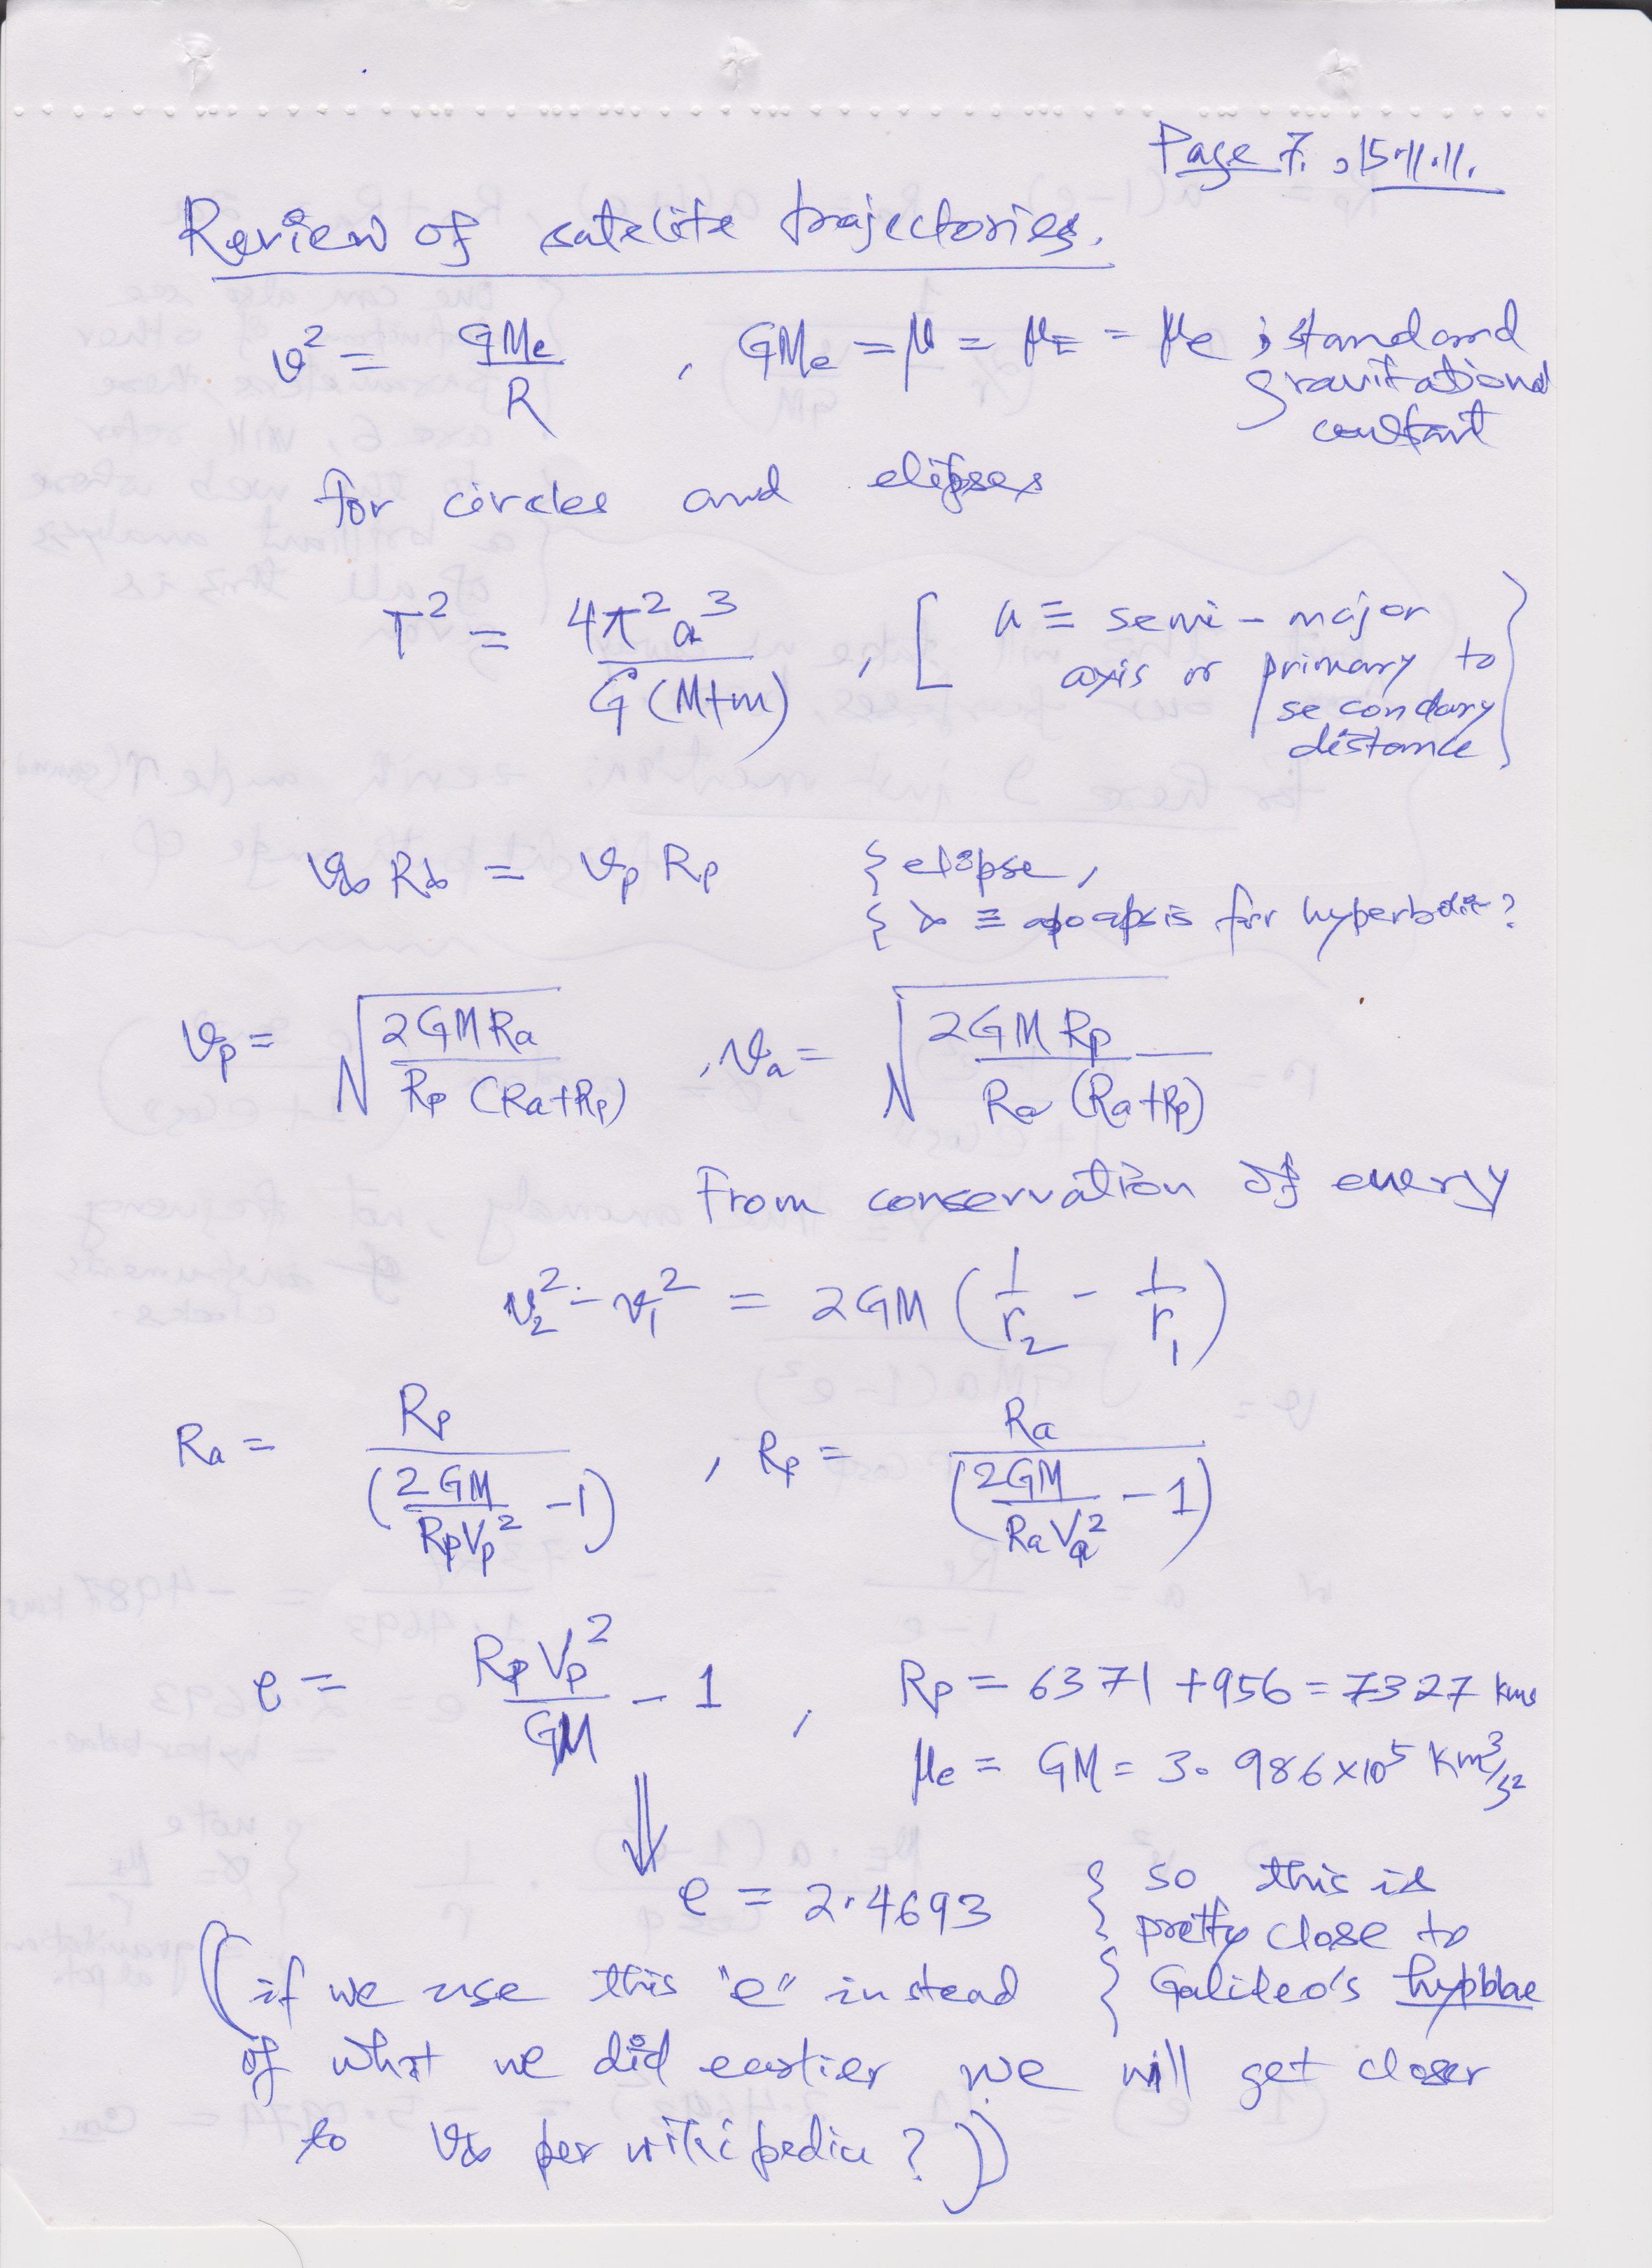 Page 7. , 15.11.11.
Review of satelite trajectories.
v² = GMe / R , GMe = μ = μE = μe ; standard
gravitational
constant
for circles and elipses
T² = 4π²a³ / G(M+m) , [ a ≡ semi-major
axis or primary to
secondary
distance }
v∞ R∞ = vp Rp { elipse,
{ ∞ ≡ apoapsis for hyperbolic?
vp = √(2GMRa / Rp (Ra+Rp)) , va = √(2GM Rp / Ra (Ra+Rp))
From conservation of energy
v₂² - v₁² = 2GM (1/r₂ - 1/r₁)
Ra = Rp / (2GM / RpVp² - 1) , Rp = Ra / (2GM / RaVa² - 1)
e = RpVp² / GM - 1 , Rp = 6371 + 956 = 7327 kms
μe = GM = 3.986×10⁵ Km³/s²
⇓
e = 2.4693 { so this is
pretty close to
(if we use this "e" instead { Galileo's hypbbae
of what we did earlier we will get closer
to v∞ per wikipedia ?))